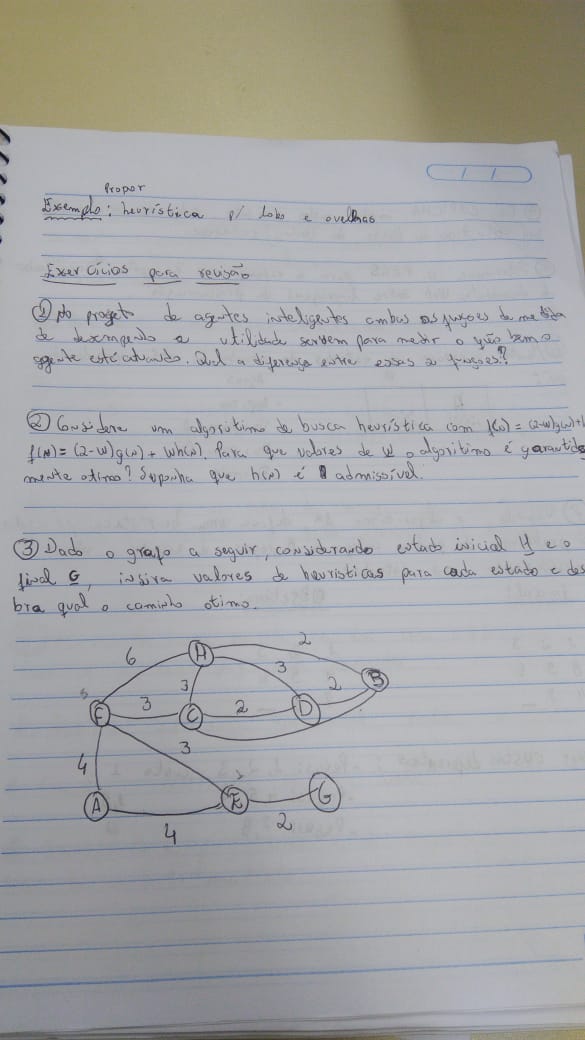 Propor
Exemplo: heurística p/ lobo e ovelhas
Exercícios para revisão
① No projeto de agentes inteligentes ambas as funçoes de medida
de desempenho e utilidade servem para medir o quão bem o
agente está atuando. Qual a diferença entre essas 2 funçoes?
② Considere um algoritimo de busca heurística com f(N) = (2-w)g(N)+
f(N) = (2-w)g(N) + Wh(N). Para que valores de W o algoritimo é garantida
mente otimo? Suponha que h(N) é admissível.
③ Dado o grafo a seguir, considerando estado inicial H e o
final G, insira valores de heuristicas para cada estado e des
bra qual o caminho otimo.
2
6 H
3 3 2 B
F 3 C 2 D
3
4
A E G
4 2